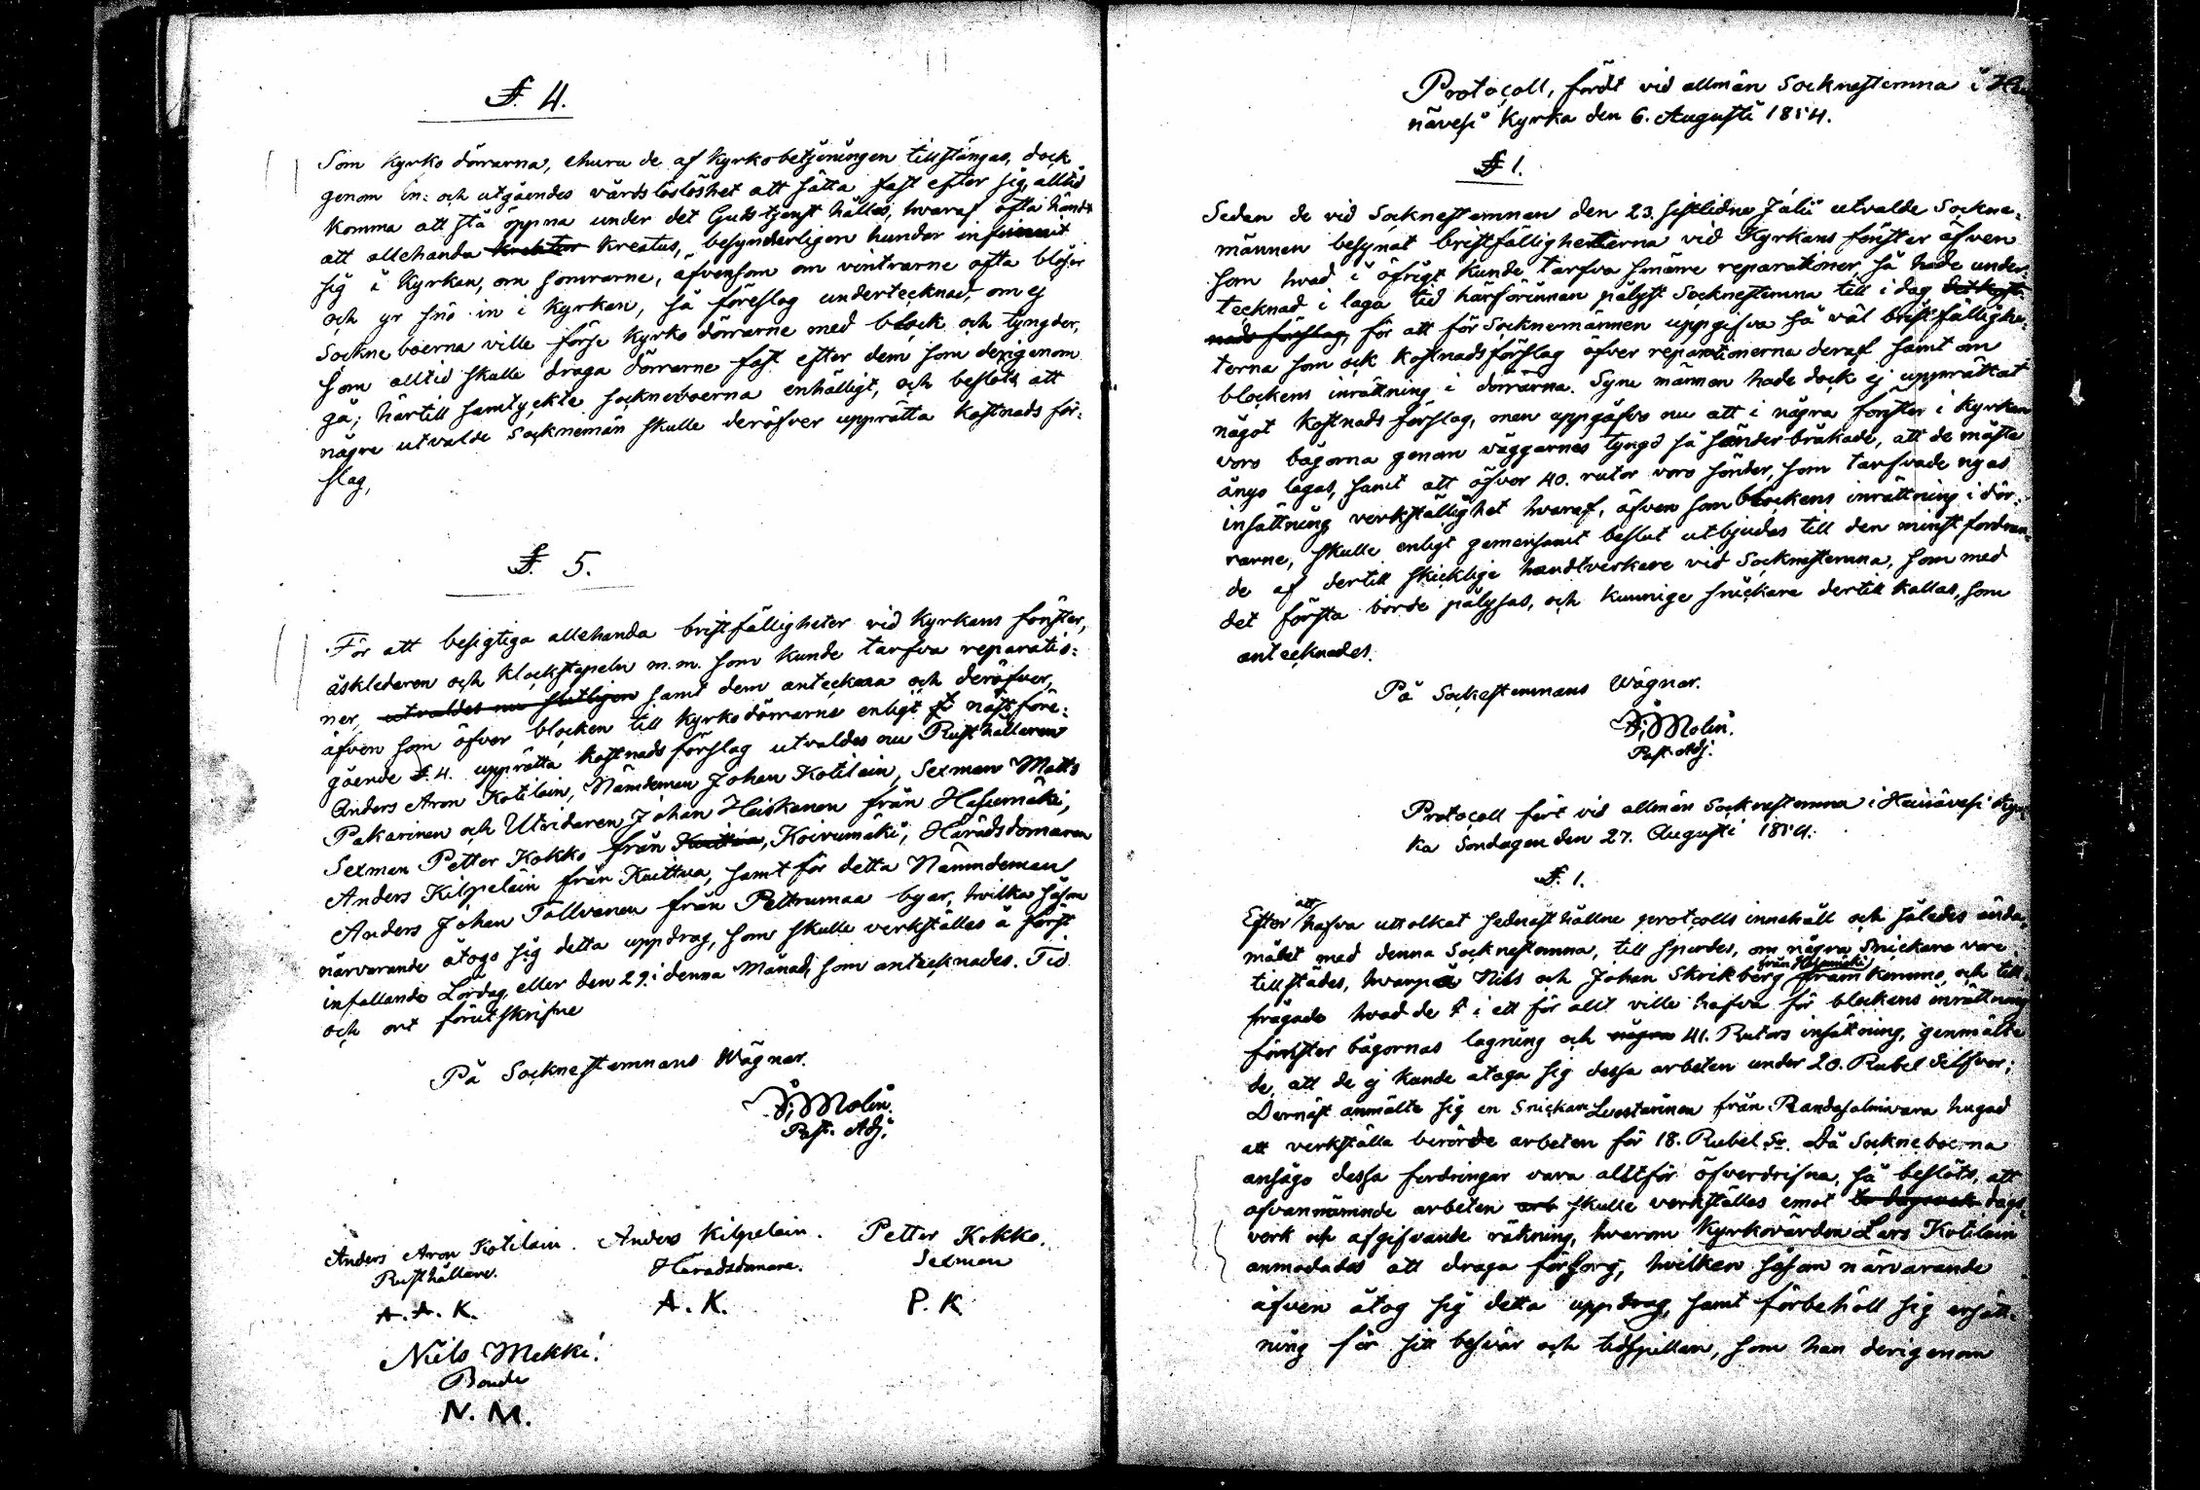 § 4.
Som Kyrko dörrarna, ehuru de af Kyrkobetjeningen tillstängas, dock
genom in: och utgåendes vårdslöshet att sätta fast efter sig, alltid
komma att stå öppna under det Gudstjenst hålles, hvaraf ofta händt
att allehanda kreatur kreatur, besynderligen hundar
sig i Kyrkan, om somrarne, äfvensom om vintrarne ofta blåser
och yr snö in i Kyrkan, så föreslog undertecknad, om ej
Sockneboerna ville förse Kyrko dörrarne med block och tyngder,
som alltid skulle draga dörrarne fast efter dem som derigenom
gå; härtill samtyckte sockneboerna enhälligt, och beslöts att
några utvalde Socknemän skulle deröfver upprätta kostnads för:
slag,
§. 5.
För att besigtiga allehanda bristfälligheter vid Kyrkans fönster,
åskledaren och klockstapeln m.m. som kunde tarfva reparatio:
ner, utvaldes nu slutligen samt dem anteckna och deröfver,
äfven som öfver blocken till Kyrko dörrarne enligt näst före:
gående §. 4. upprätta kostnads förslag utvaldes nu Rusthållaren
Anders Aron Kotilain, Nämdeman Johan Kotilain, Sexman Matts
Pakarinen och Utridaren Johan Heiskanen från Hasumäki,
Sexman Petter Kokko från Kuittua, Koivumäki, Häradsdomaren
Anders Kilpeläin från Kuittua, samt för detta Nämndeman
Anders Johan Tallvanen från Pettrumaa byar, hvilka såsom
närvarande åtogo sig detta uppdrag, som skulle verkställas å först
infallande Lördag, eller den 29. i denna Månad, som antecknades. Tid
och ort förutskrifne
På Socknestemmans Wägnar.
Molin.
Past. Adj.
Anders Aron Kotilain. Anders Kilpelain. Petter Kokko.
Rusthållare. Häradsdomare. Sexman
A. A. K. A. K. P. K
Niels Mekki.
Bonde
N. M.
Protocoll, fördt vid allmän Socknestemna i
nävesi Kyrka den 6. Augusti 1854.
§ 1.
Sedan de vid Socknestemnan den 23. sistlidne Julii utvalde Sockne:
männen besynat bristfälligheterna vid Kyrkans fönster äfven
som hvad i öfrigt kunde tarfva smärre reparationer, så hade under:
tecknad i laga tid härförinnan pålyst Socknestemna till i dag det kost:
nads förslag, för att för Socknemännen uppgifva så väl bristfällighe:
terna som ock kostnadsförslag öfver reparationerna deraf samt om
blockens inrättning i dörrarna. Syne männen hade dock ej upprättat
något kostnads förslag, men uppgåfvo nu att i några fönster i Kyrkan
voro bågorna genom väggarnes tyngd så sönder bråkade, att de måste
ånyo lagas, samt att öfver 40. rutor voro sönder, som tarfvade nya
insättning verkställighet hvaraf, äfven som blockens inrättning i dör:
rarne, skulle enligt gemensamt beslut utbjudas till den minst fordran:
de af dertill skicklige handtverkare vid Socknestemna, som med
det första borde pålysas, och kunnige snickare dertill kallas, som
antecknades.
På Sockestemmans Wägnar.
Molin.
Past. Adj.
Protocoll fört vid allmän Socknestemna i Heinävesi Kyr:
ka Söndagen den 27. Augusti 1854.
§. 1.
Efter att hafva uttolkat sednast hållne protocolls innehåll och således ända:
målet med denna Socknestemna, till sportdes, om några Snickare vore
tillstädes, hvarpå Nils och Johan Skrikberg från Hasumäki fram kommo, och till:
frågade hvad de i ett för allt ville hafva för blockens inrättning
fönster bågornas lagning och några 41. Rutors insättning, genmälte
de, att de ej kunde åtaga sig dessa arbeten under 20. Rubel Silfver;
Dernäst anmälte sig en Snickare Luostarinen från Randasalmivara hugad
att verkställa berörde arbeten för 18. Rubel Sr. Då Sockneboerna
ansågo dessa fordringar vara alltför öfverdrifna, så beslöts, att
ofvannämnde arbeten arb skulle verkställas emot dags:
verk och afgifvande räkning, hvarom Kyrkovärden Lars Kotilain
anmodades att draga försorg, hvilken såsom närvarande
äfven åtog sig detta uppdrag, samt förbehöll sig ersätt:
ning för sitt besvär och tidspillan, som han derigenom